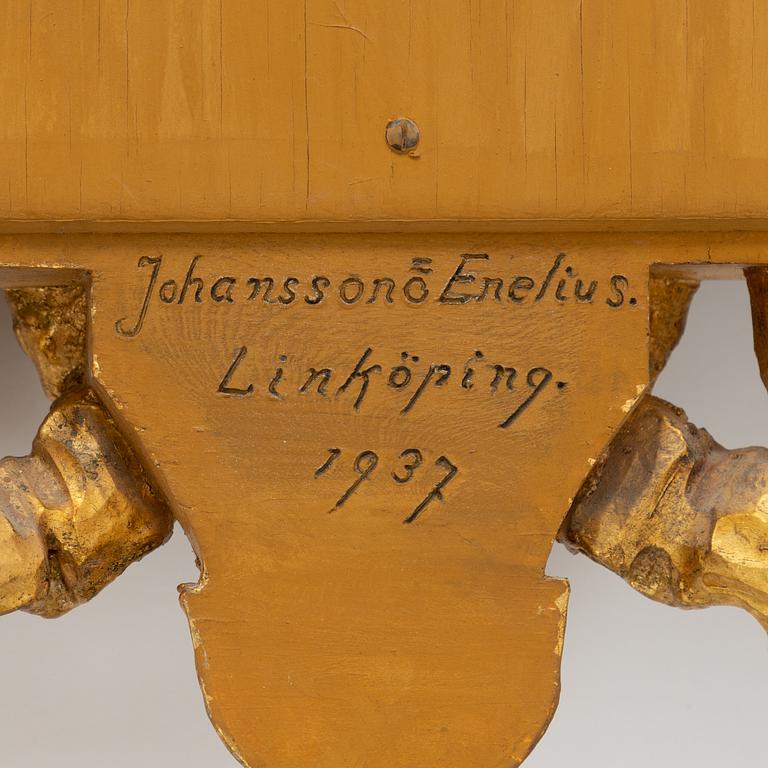 Johansson ō Enelius.
Linköping.
1937